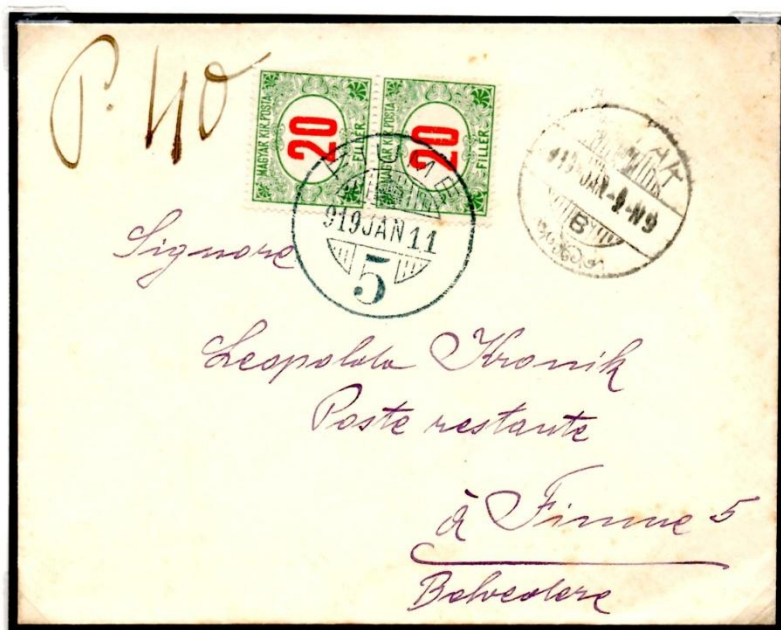 P. 40
MAGYAR KIR. POSTA 20 FILLER
MAGYAR KIR. POSTA 20 FILLER
919 JAN 11
5
919 JAN -9 -N9
B
Signore
Leopoldo Kronik
Poste restante
à Fiume 5
Belvedere